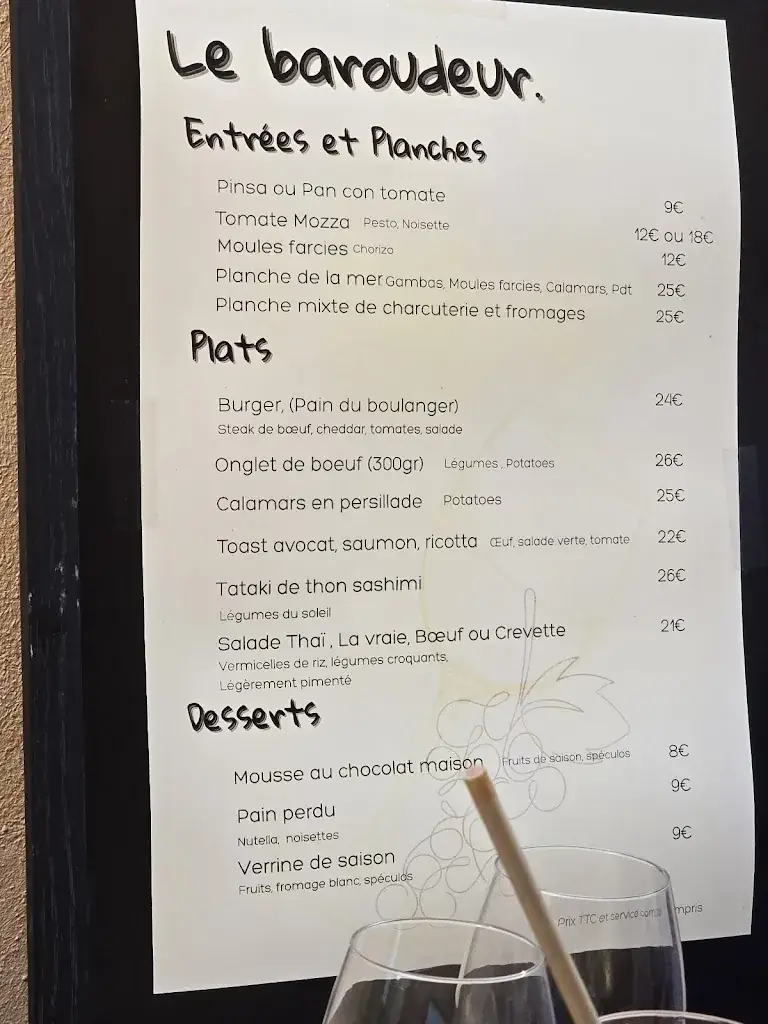 Le baroudeur.
Entrées et Planches
Pinsa ou Pan con tomate 9€
Tomate Mozza Pesto, Noisette 12€ ou 18€
Moules farcies Chorizo 12€
Planche de la mer Gambas, Moules farcies, Calamars, Pdt 25€
Planche mixte de charcuterie et fromages 25€
Plats
Burger, (Pain du boulanger) 24€
Steak de bœuf, cheddar, tomates, salade
Onglet de boeuf (300gr) Légumes , Potatoes 26€
Calamars en persillade Potatoes 25€
Toast avocat, saumon, ricotta Œuf, salade verte, tomate 22€
Tataki de thon sashimi 26€
Légumes du soleil
Salade Thaï , La vraie, Bœuf ou Crevette 21€
Vermicelles de riz, légumes croquants,
Légèrement pimenté
Desserts
Mousse au chocolat maison Fruits de saison, spéculos 8€
Pain perdu 9€
Nutella, noisettes
Verrine de saison 9€
Fruits, fromage blanc, spéculos
Prix TTC et service